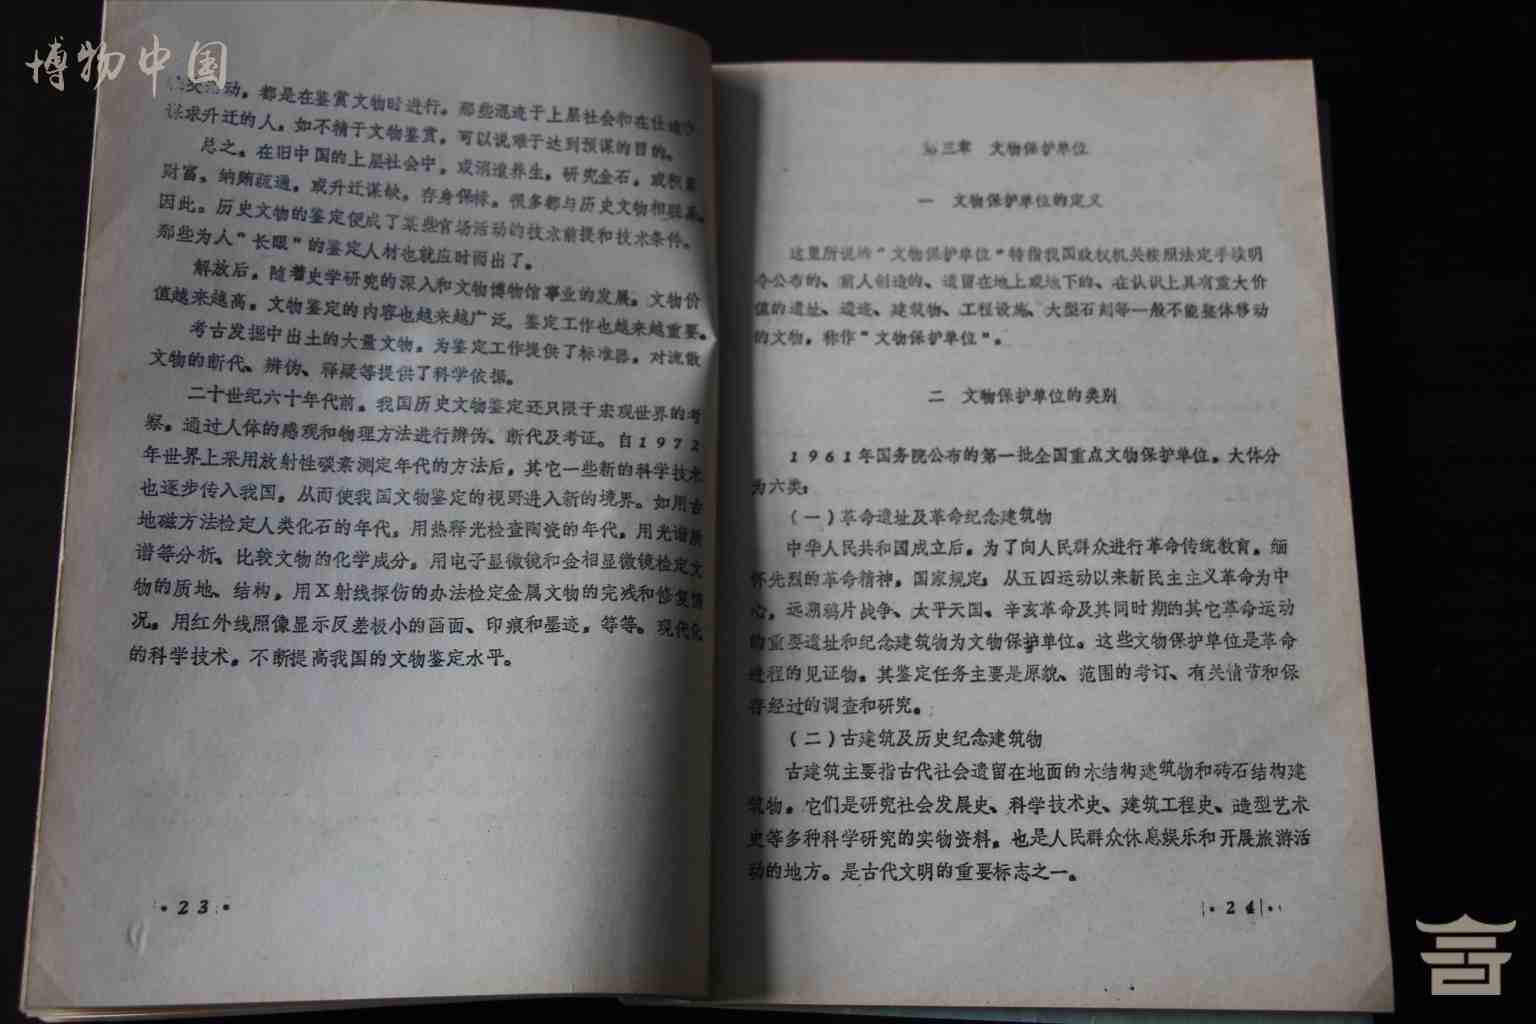 博物中国
活动，都是在鉴赏文物时进行。那些混迹于上层社会和在仕途中
谋求升迁的人，如不精于文物鉴赏，可以说难于达到预谋的目的。
总之，在旧中国的上层社会中，或消遣养生，研究金石，或积累
财富、纳贿疏通，或升迁谋缺，存身保禄，很多都与历史文物相联系。
因此，历史文物的鉴定便成了某些官场活动的技术前提和技术条件。
那些为人“长眼”的鉴定人材也就应时而出了。
解放后，随着史学研究的深入和文物博物馆事业的发展，文物价
值越来越高，文物鉴定的内容也越来越广泛，鉴定工作也越来越重要。
考古发掘中出土的大量文物，为鉴定工作提供了标准器，对流散
文物的断代、辨伪、释疑等提供了科学依据。
二十世纪六十年代前，我国历史文物鉴定还只限于宏观世界的考
察，通过人体的感观和物理方法进行辨伪、断代及考证。自1972
年世界上采用放射性碳素测定年代的方法后，其它一些新的科学技术
也逐步传入我国，从而使我国文物鉴定的视野进入新的境界。如用古
地磁方法检定人类化石的年代，用热释光检查陶瓷的年代，用光谱质
谱等分析、比较文物的化学成分，用电子显微镜和金相显微镜检定文
物的质地、结构，用X射线探伤的办法检定金属文物的完残和修复情
况，用红外线照像显示反差极小的画面、印痕和墨迹，等等。现代化
的科学技术，不断提高我国的文物鉴定水平。
·23·
第三章 文物保护单位
一 文物保护单位的定义
这里所说的“文物保护单位”特指我国政权机关按照法定手续明
令公布的、前人创造的、遗留在地上或地下的、在认识上具有重大价
值的遗址、遗迹、建筑物、工程设施、大型石刻等一般不能整体移动
的文物，称作“文物保护单位”。
二 文物保护单位的类别
1961年国务院公布的第一批全国重点文物保护单位，大体分
为六类：
（一）革命遗址及革命纪念建筑物
中华人民共和国成立后，为了向人民群众进行革命传统教育，缅
怀先烈的革命精神，国家规定：从五四运动以来新民主主义革命为中
心，远溯鸦片战争、太平天国、辛亥革命及其同时期的其它革命运动
的重要遗址和纪念建筑物为文物保护单位。这些文物保护单位是革命
进程的见证物，其鉴定任务主要是原貌、范围的考订、有关情节和保
存经过的调查和研究。
（二）古建筑及历史纪念建筑物
古建筑主要指古代社会遗留在地面的木结构建筑物和砖石结构建
筑物。它们是研究社会发展史、科学技术史、建筑工程史、造型艺术
史等多种科学研究的实物资料，也是人民群众休息娱乐和开展旅游活
动的地方。是古代文明的重要标志之一。
·24·